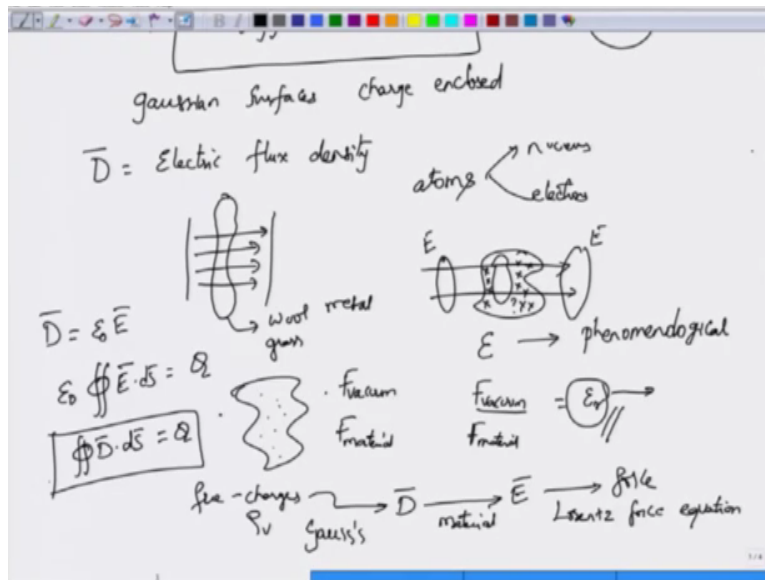 gaussian surfaces charge enclosed
D̅ = Electric flux density
atoms
nucleus
electrons
E̅
E̅
wool metal
glass
D̅ = ε₀ E̅
ε → phenomenological
ε₀ ∯ E̅·ds̅ = Q
∯ D̅·ds̅ = Q
Fvacuum
Fmaterial
Fvacuum = εr
Fmaterial
free-charges → D̅ → E̅ → force
ρv Gauss's material Lorentz force equation